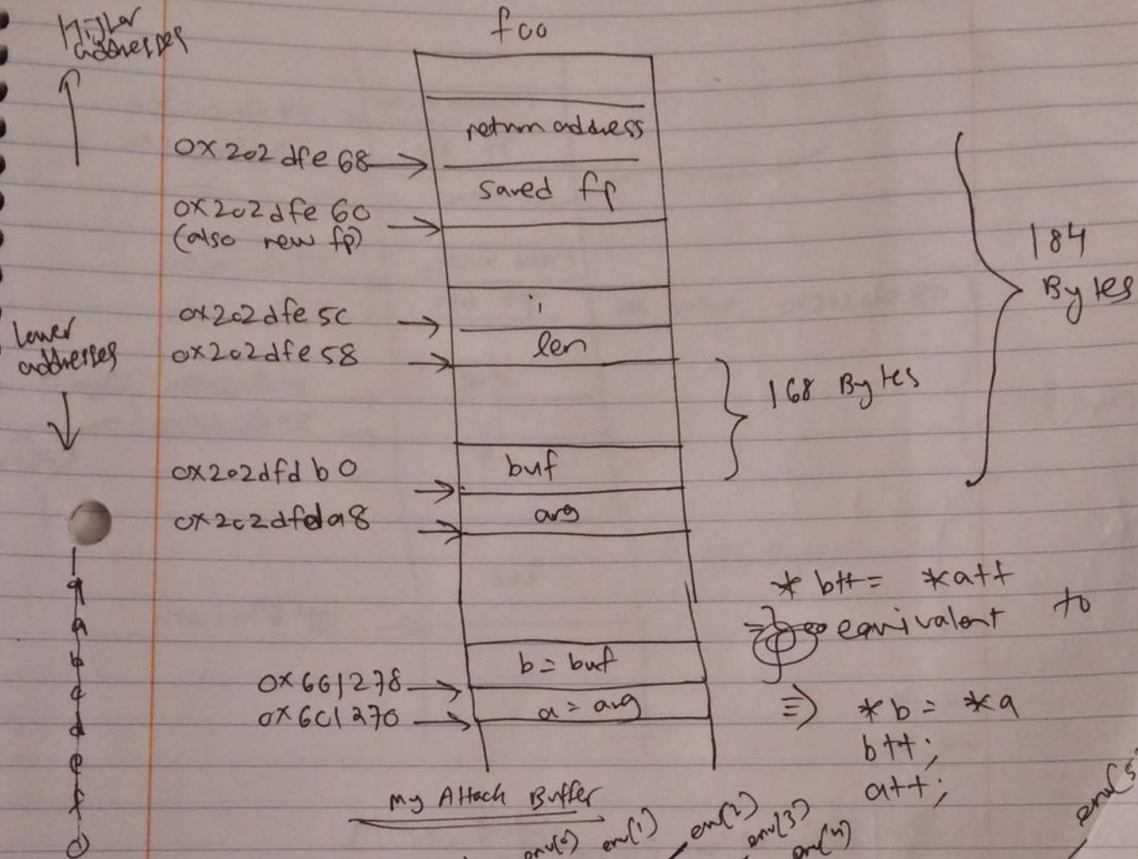 foo
Higher
addresses
return address
0x202dfe68
saved fp
0x202dfe60
(also new fp)
184
Bytes
i
0x202dfe5c
Lower
addresses
len
0x202dfe58
168 Bytes
buf
0x202dfdb0
arg
0x202dfda8
* b++ = *a++
equivalent to
b = buf
0x661278
a = arg
0x601270
⇒ *b = *a
b++;
a++;
9
a
b
c
d
e
f
0
My Attack Buffer
env(0) env(1) env(2) env(3) env(4) env(5)